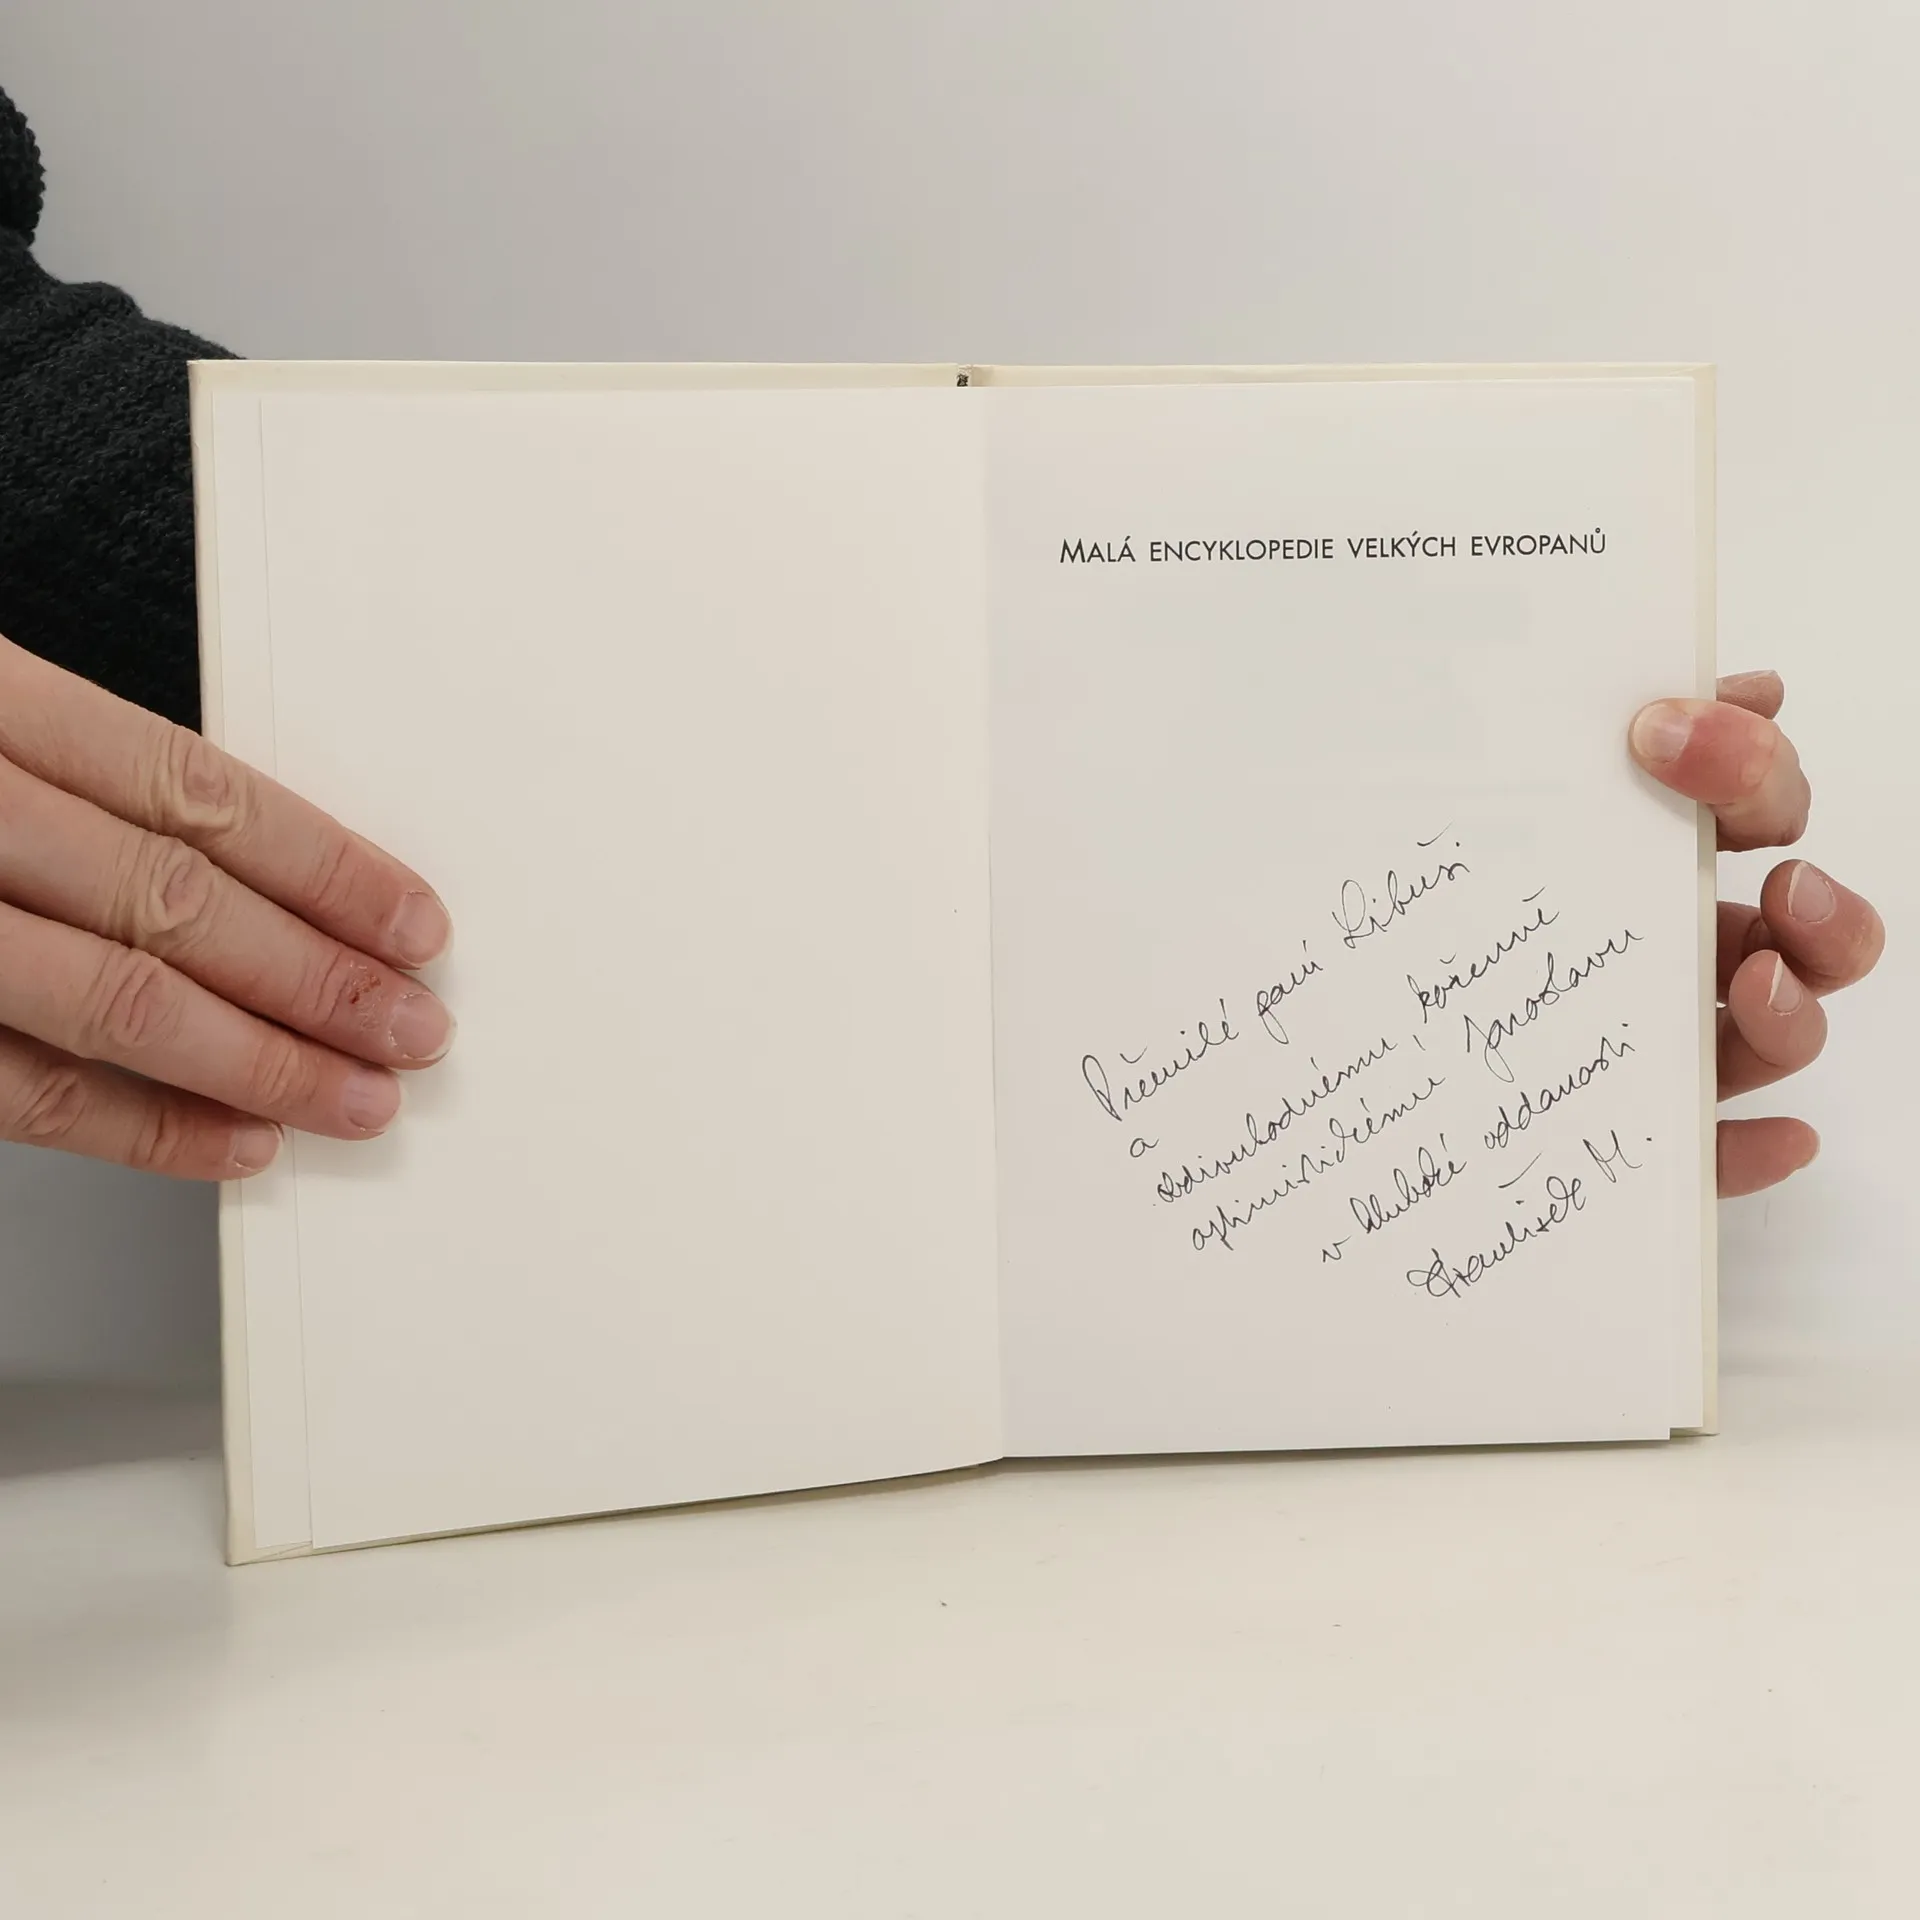 MALÁ ENCYKLOPEDIE VELKÝCH EVROPANŮ
Přemilé paní Libuši
a
obdivuhodnému, kořenně
optimistickému Jaroslavu
v hluboké oddanosti
František M.